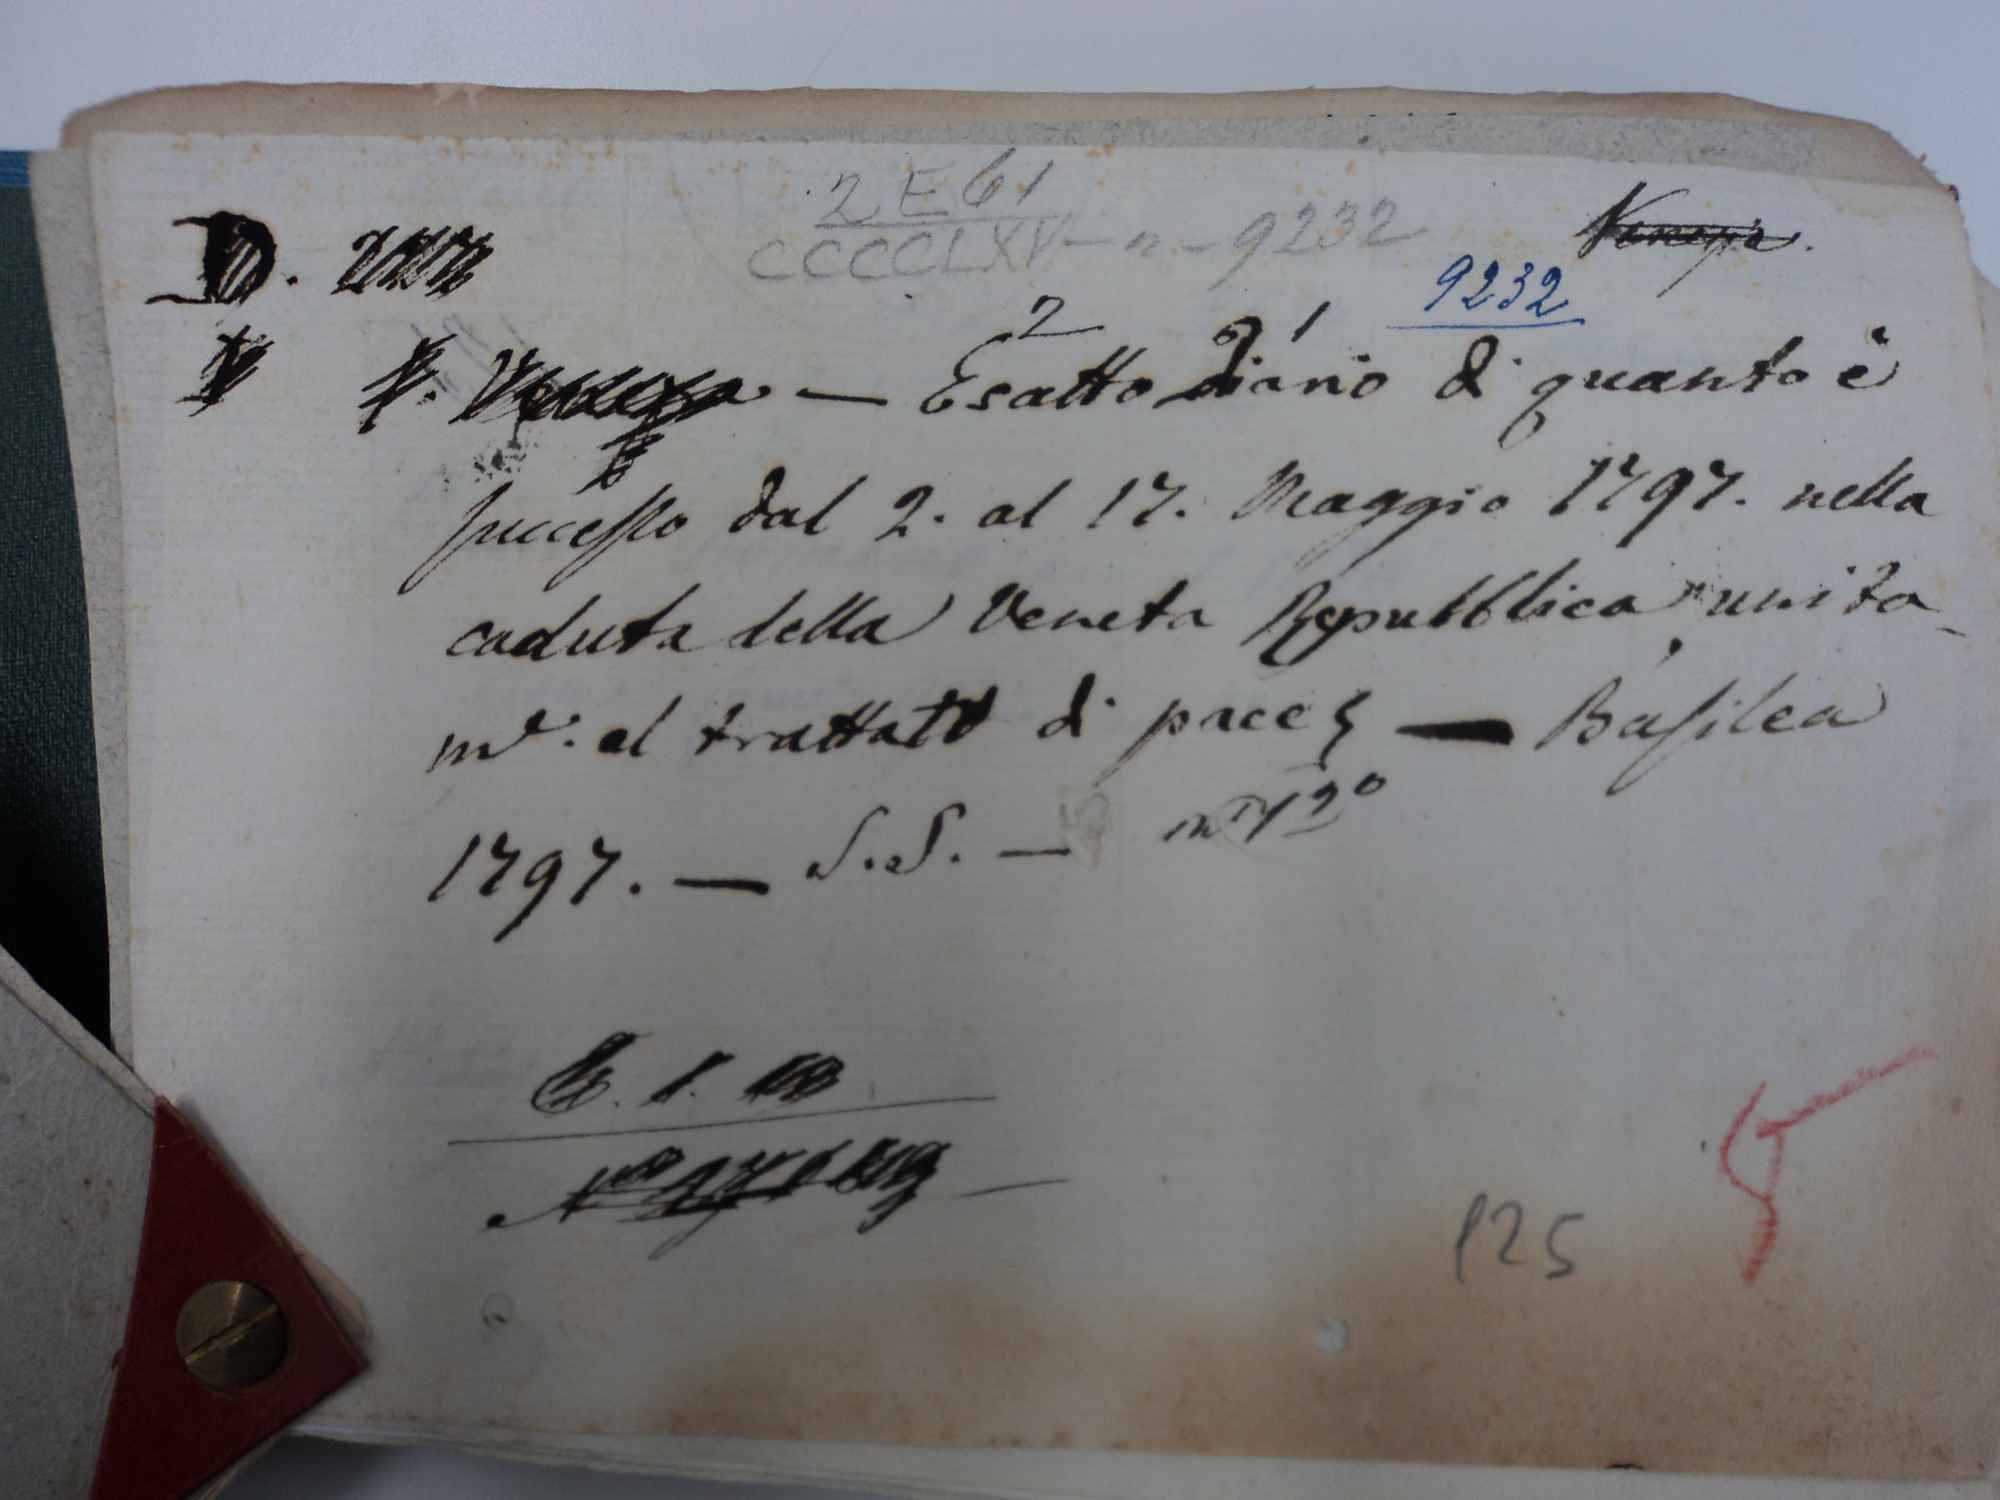 2 E 61
CCCCLXV - n - 9232
Venezia.
9232
D.
2 1
— Esatto diario di quanto è
successo dal 2. al 17. Maggio 1797. nella
caduta della Veneta Repubblica unita-
mᵉ. al trattato di pace — Basilea
1797. — S. S. — in 12º
125